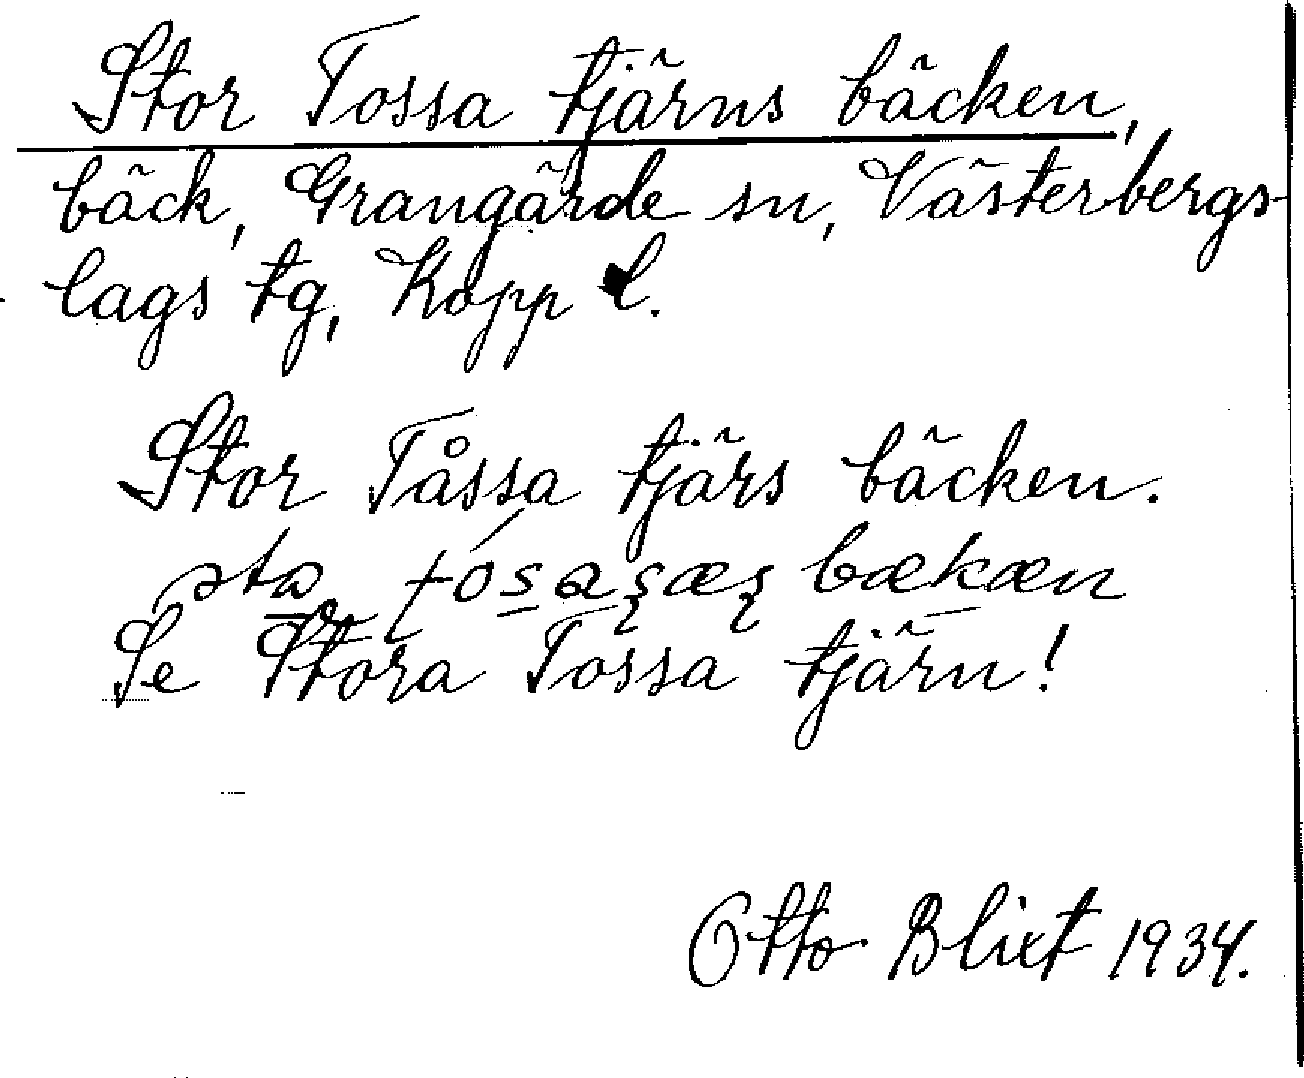 Stor Tossa tjärns bäcken,
bäck, Grangärde sn, Västerbergs-
lags tg, Kopp l.
Stor Tåssa tjärs bäcken.
bækæn
Se Stora Tossa tjärn!
Otto Blixt 1934.